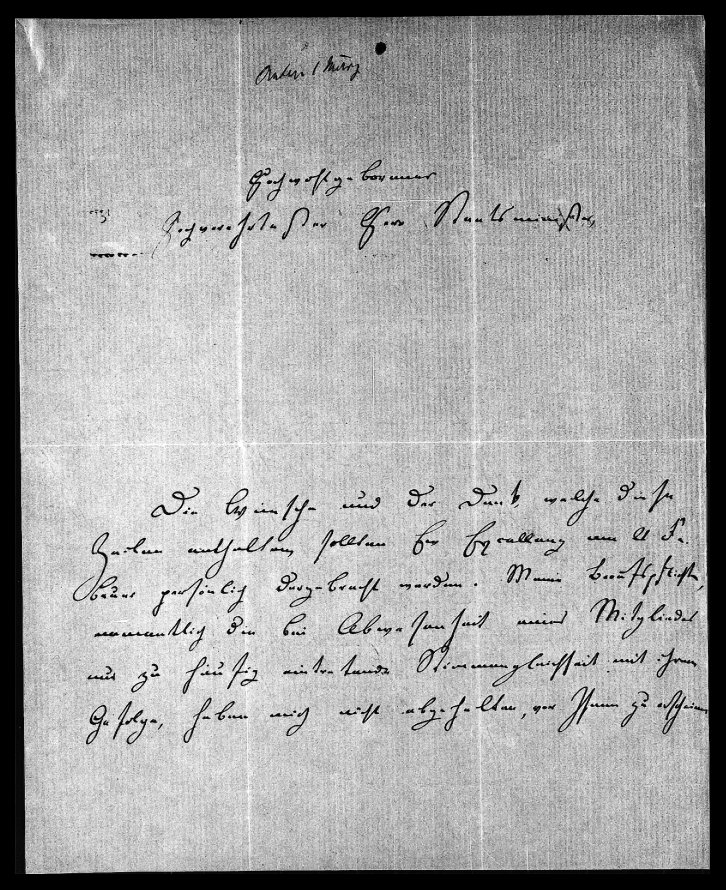 Hochwohlgeborener
Hochverehrtester Herr Staatsminister,
Die Wünsche und der Dank, welche diese
Zeilen enthalten, sollten Ew Excellenz am
persönlich dargebracht werden. Meine Berufspflichten,
namentlich die bei Abwesenheit eines Mitgliedes
nur zu häufig eintretende Stimmengleichheit mit ihrem
Gefolge, haben mich nicht abgehalten, vor Ihnen zu erscheinen